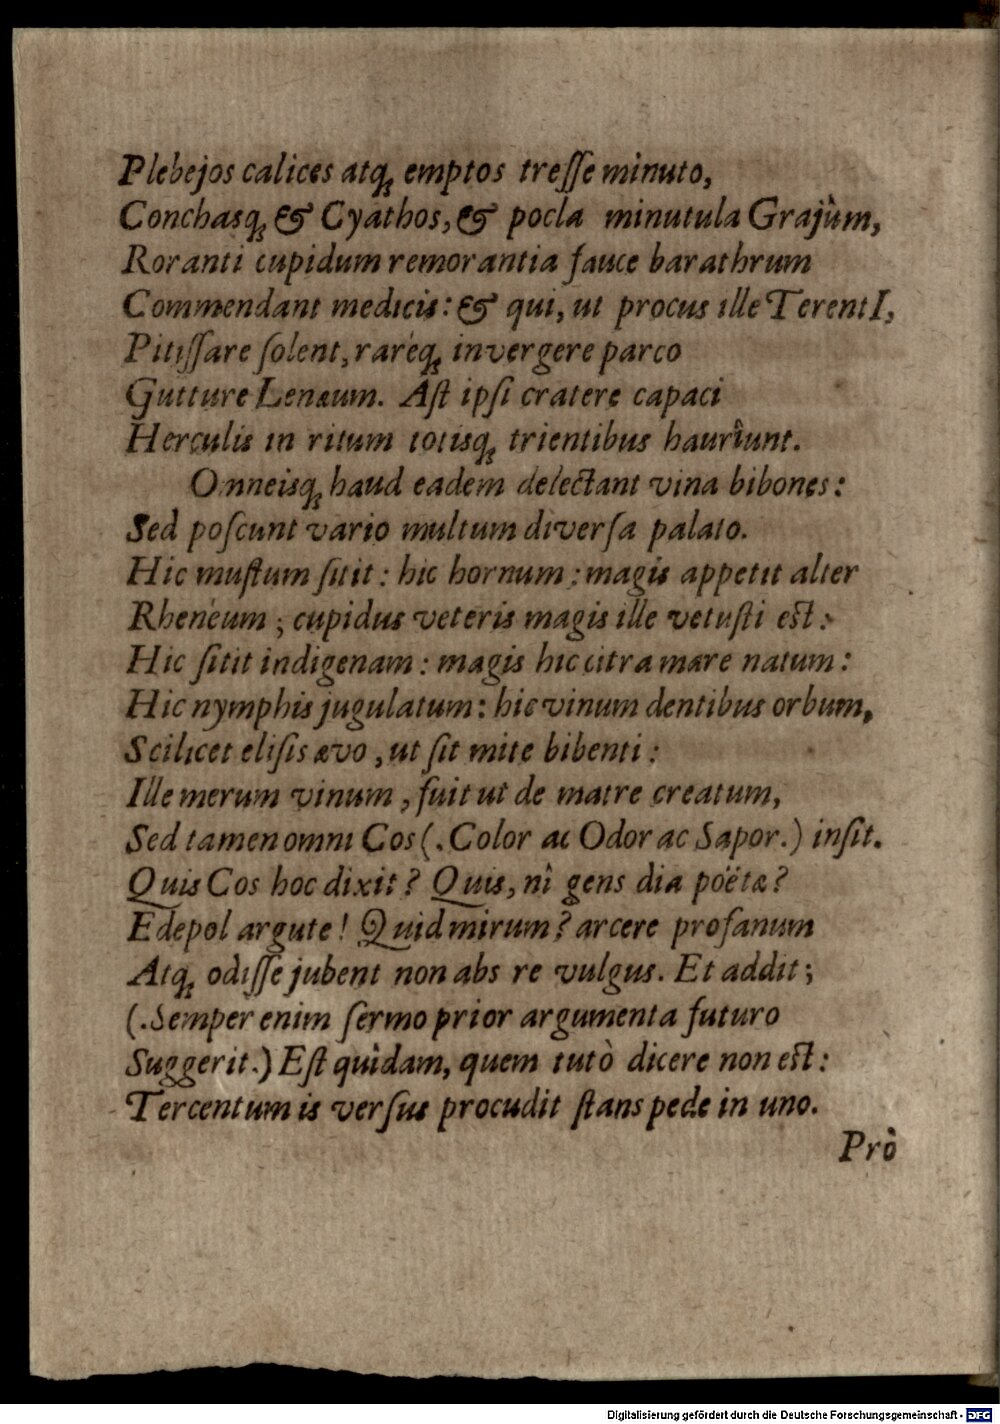 Plebejos calices atq; emptos treſſe minuto,
Conchasq; & Cyathos, & pocla minutula Grajûm,
Roranti cupidum remorantia fauce barathrum
Commendant medicis: & qui, ut procus ille TerentI,
Pitiſſare ſolent, rarèq; invergere parco
Gutture Lenæum. Aſt ipſi cratere capaci
Herculis in ritum totisq; trientibus hauriunt.
Omneisq; haud eadem delectant vina bibones:
Sed poſcunt vario multum diverſa palato.
Hic muſtum ſitit: hic hornum: magis appetit alter
Rhenëum; cupidus veteris magis ille vetuſti est:
Hic ſitit indigenam: magis hic citra mare natum:
Hic nymphis jugulatum: hic vinum dentibus orbum,
Scilicet eliſis ævo, ut ſit mite bibenti:
Ille merum vinum, fuit ut de matre creatum,
Sed tamen omni Cos (.Color ac Odor ac Sapor.) inſit.
Quis Cos hoc dixit? Quis, nî gens dia poëtæ?
Edepol argute! Quid mirum? arcere profanum
Atq; odiſſe jubent non abs re vulgus. Et addit;
(.Semper enim ſermo prior argumenta futuro
Suggerit.) Eſt quidam, quem tutò dicere non est:
Tercentum is verſus procudit ſtans pede in uno.
Prò
Digitalisierung gefördert durch die Deutsche Forschungsgemeinschaft - DFG